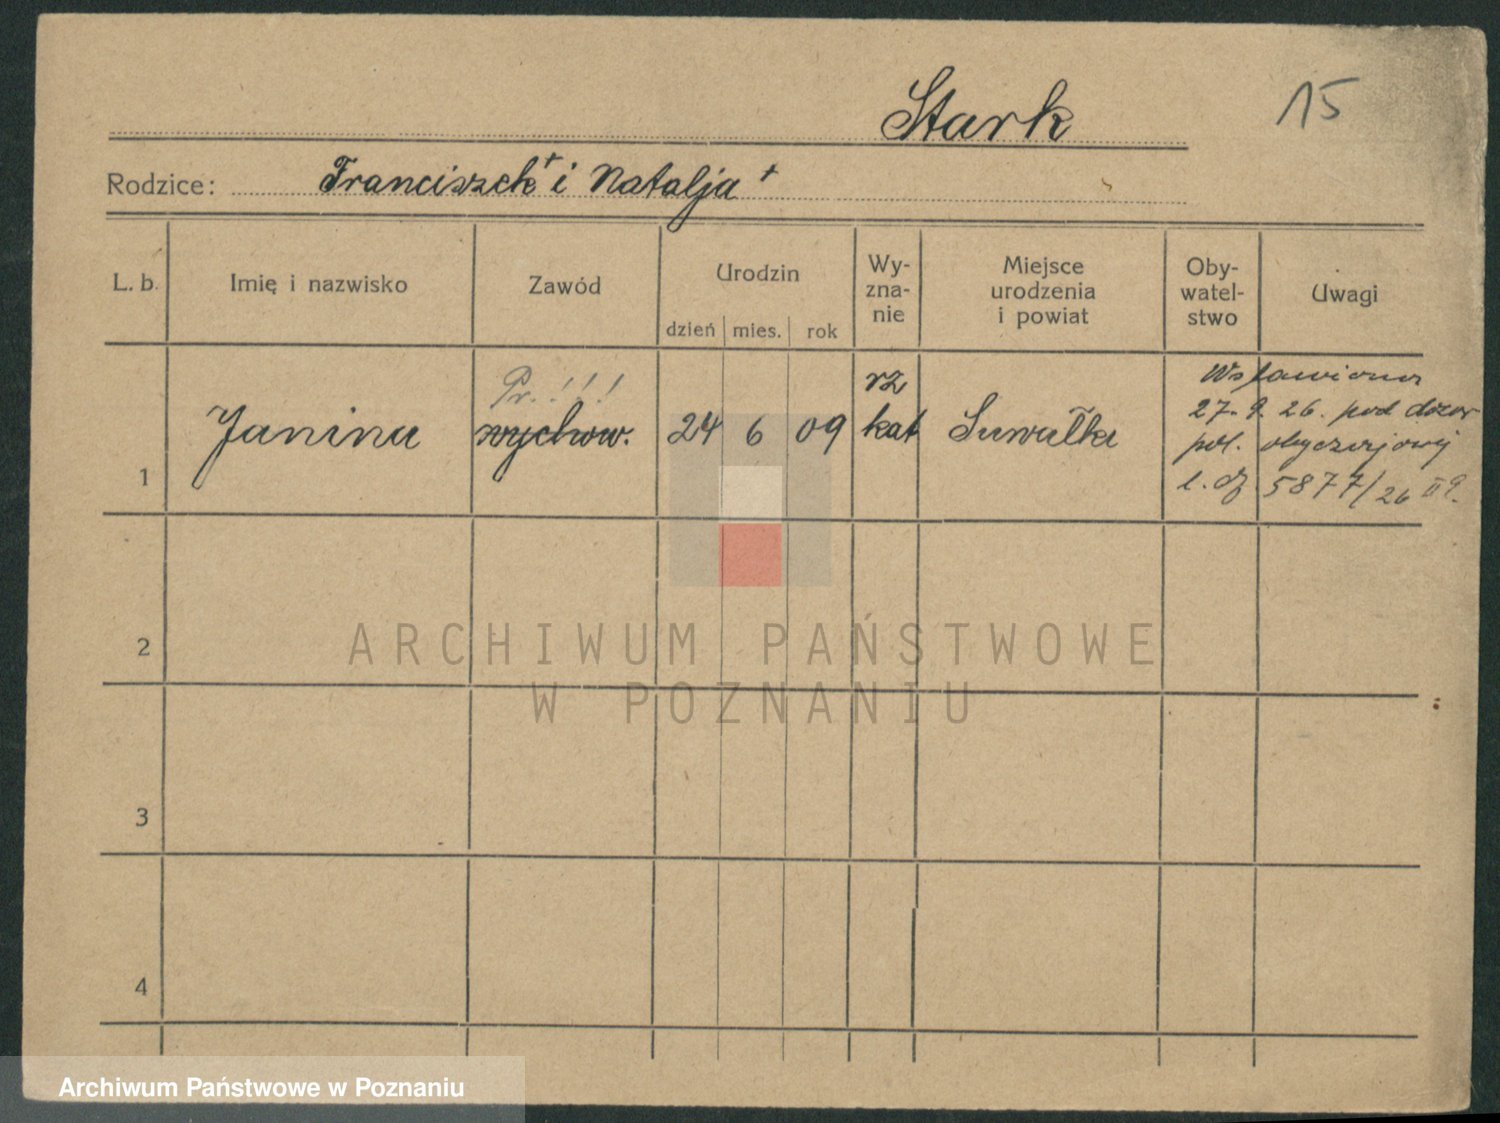 Stark
15
Rodzice: Franciszek + i Natalja +
L. b. Imię i nazwisko Zawód Urodzin Wy-zna-nie Miejsce urodzenia i powiat Oby-watel-stwo Uwagi
dzień mies. rok
1 Janina Pr. !!! wychow. 24 6 09 rz kat Suwałki
Wstawiona
27. 9. 26. pod dozor
pol. obyczajowej
l. dz 5877/26 II 9.
2
3
4
ARCHIWUM PAŃSTWOWE
W POZNANIU
Archiwum Państwowe w Poznaniu